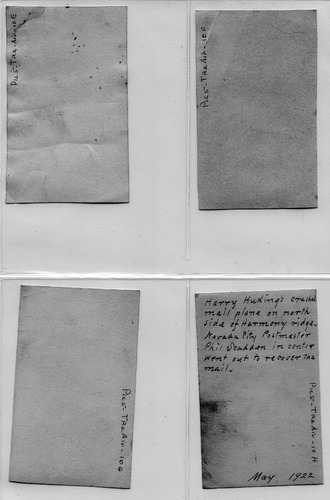 Pics-TraAir-10E
Pics-TraAir-10F
Pics-TraAir-10G
Harry Huking's crashed
mail plane on north
side of Harmony ridge.
Nevada City Postmaster
Phil Scadden in center
went out to recover the
mail.
Pics-TraAir-10H
May 1922